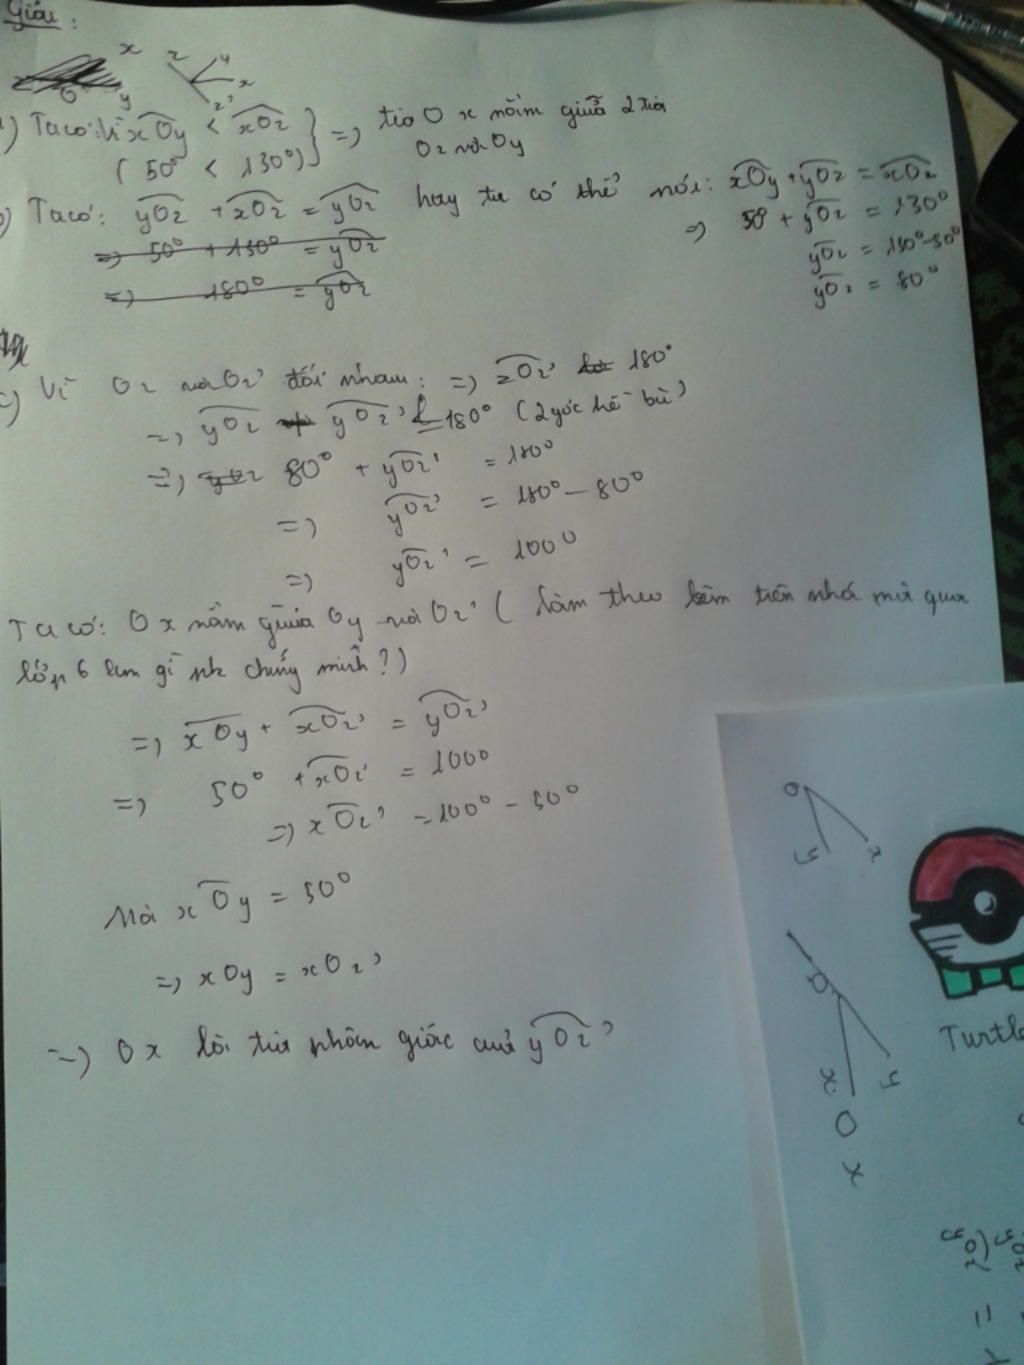 Giải:
x
z y x
O y z'
a) Ta có: Vì xOy < xOz
(50° < 130°) } => tia Ox nằm giữa 2 tia
Oz và Oy
b) Ta có: yOz + xOz = yOz hay ta có thể nói: xOy + yOz = xOz
=> 50° + 130° = yOz
=> 180° = yOz
=> 50° + yOz = 130°
yOz = 130° - 50°
yOz = 80°
c) Vì Oz và Oz' đối nhau: => zOz' 180°
=> yOz yOz' = 180° (2 góc kề bù)
=> 80° + yOz' = 180°
=> yOz' = 180° - 80°
=> yOz' = 100°
Ta có: Ox nằm giữa Oy và Oz' ( làm theo trên nhá mà qua
lớp 6 làm gì chứng minh?)
=> xOy + xOz' = yOz'
=> 50° + xOz' = 100°
=> xOz' = 100° - 50°
Mà xOy = 50°
=> xOy = xOz'
=> Ox là tia phân giác của yOz'
O
y x
O
x y
O
x
Turtle